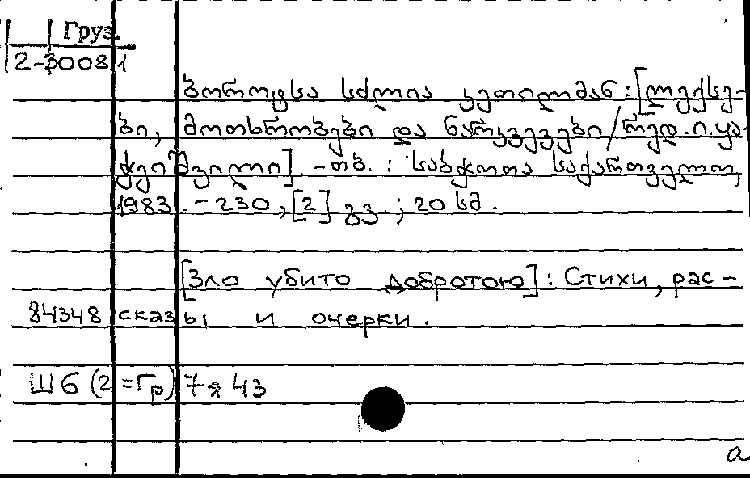 Груз.
2-30081
ბოროტსა სძლია კეთილმან : [ლექსე-
ბი, მოთხრობები და ნარკვევები / რედ. ი. ყა-
ჭეიშვილი] - თბ. : საბჭოთა საქართველო,
1983. - 230, [2] გვ. ; 20 სმ.
[Зло убито добротою] : Стихи, рас-
84348 сказы и очерки.
Ш6 (2=Гр) 7я43
а